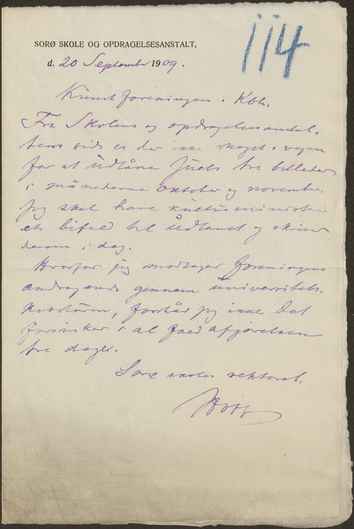 114
SORØ SKOLE OG OPDRAGELSESANSTALT,
d. 20 September 1909.
Kunstforeningen. Kbh.
Fra Skolens og opdragelsesanstal-
tens side er der intet i vejen
for at udlåne Juels tre billeder
i månederne oktober og november.
Jeg skal have kultusministeri-
ets bifald til Udlånet og skriver
derom i dag.
Hvorfor jeg modtager foreningens
andragende gennem universitets-
kvæsturen, forstår jeg ikke. Det
forsinker i al fald afgørelsen
tre dage.
Sorø skoles rektorat.